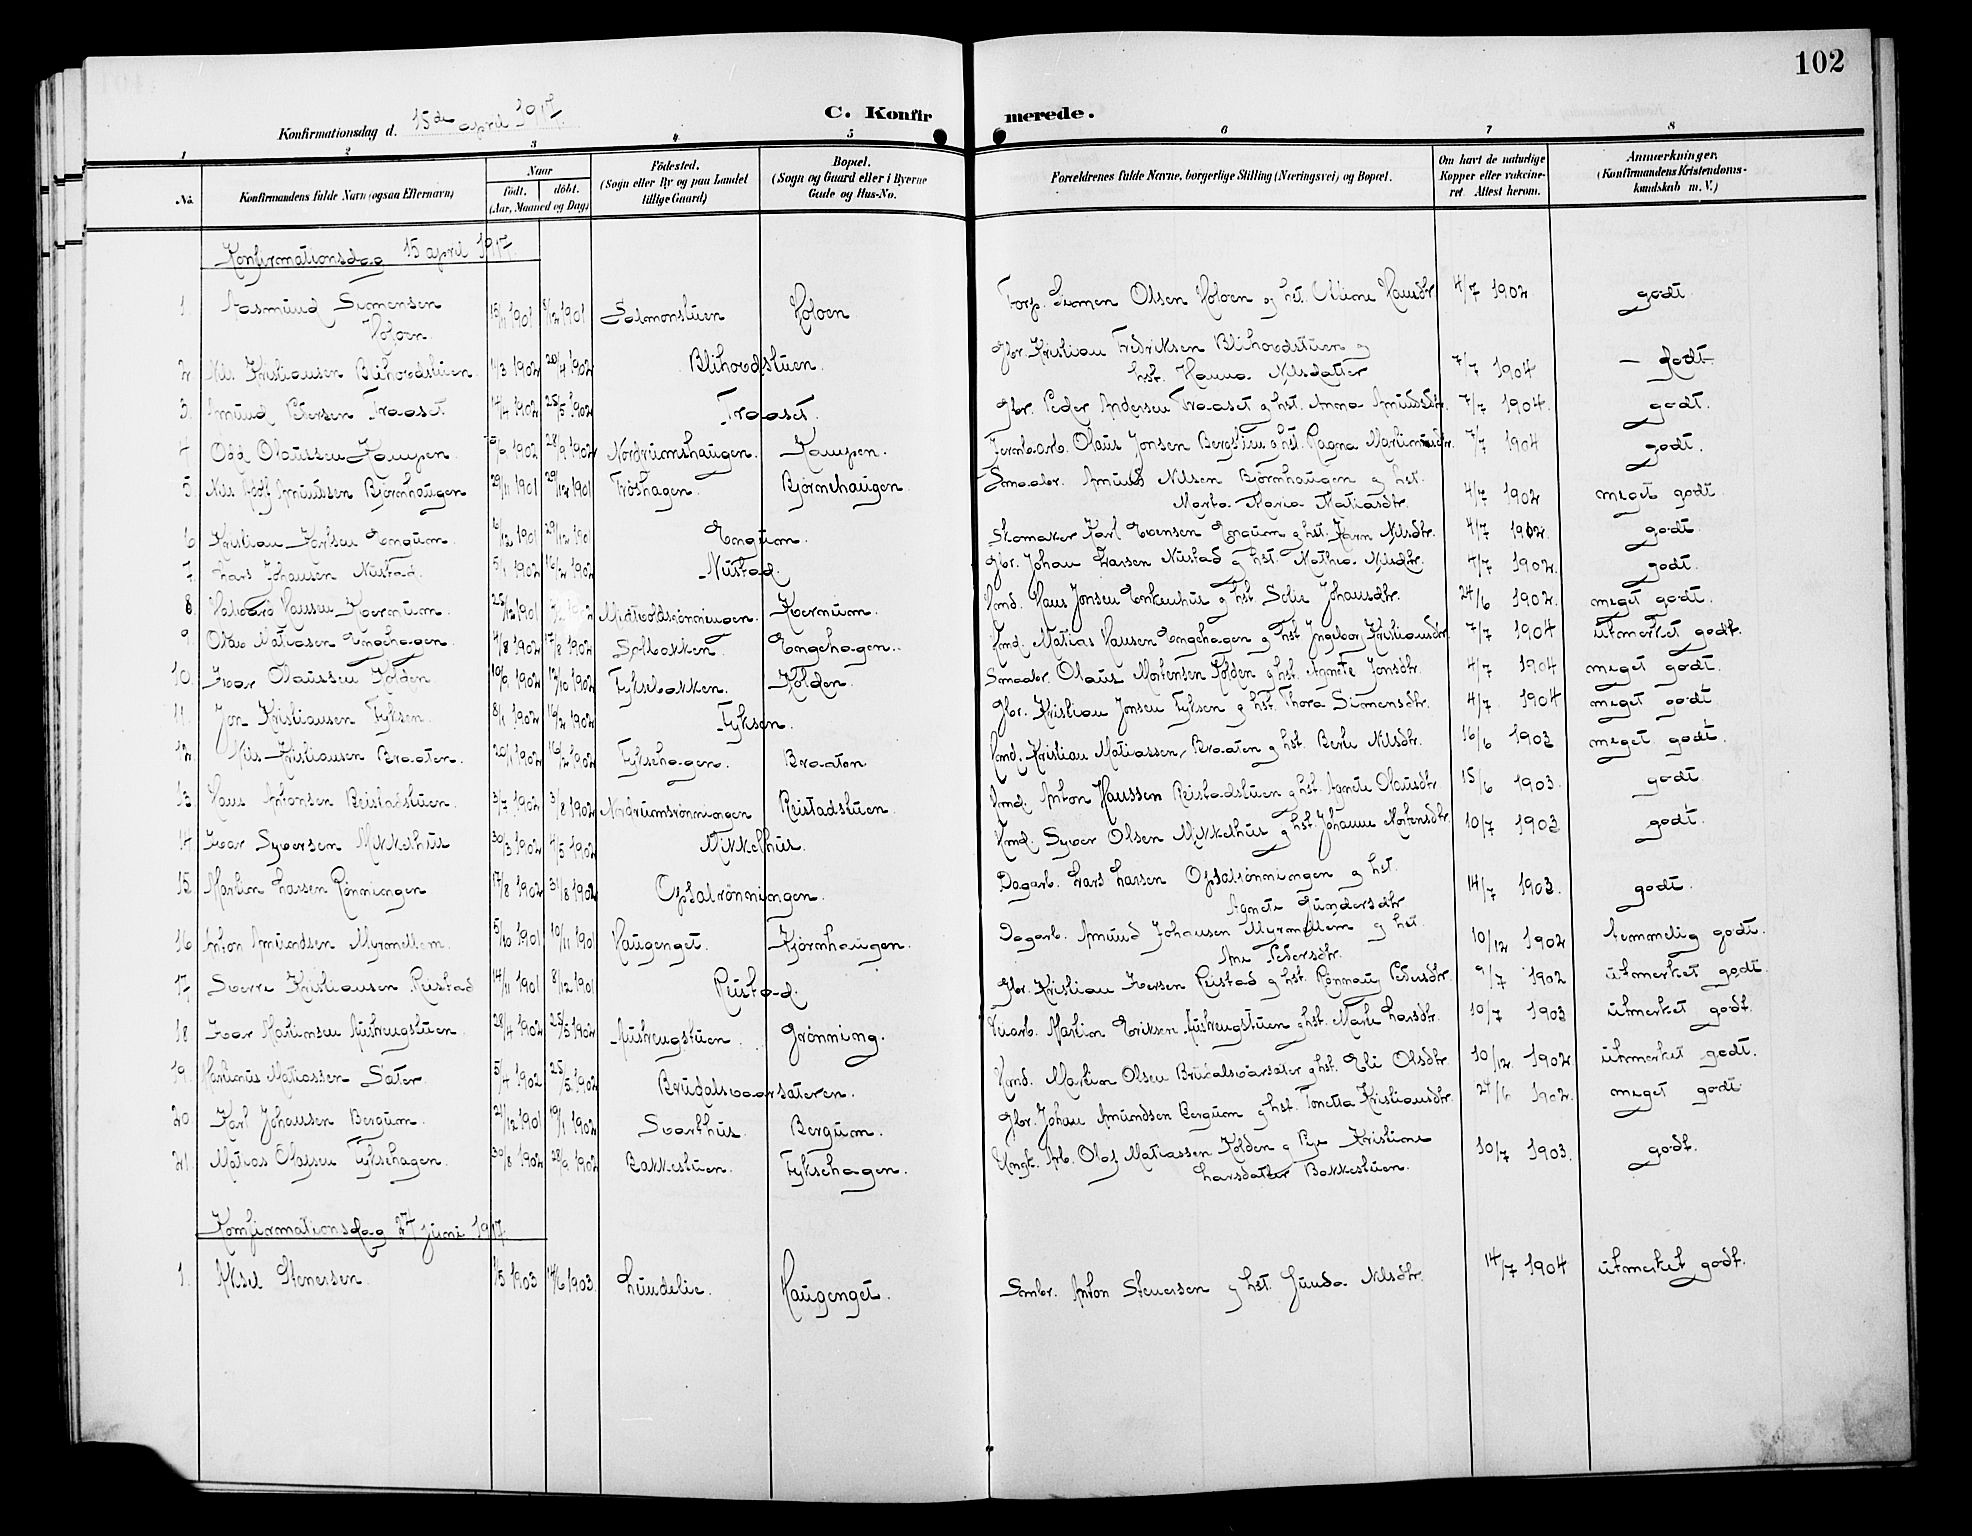 102
C. Konfirmerede.
Konfirmationsdag d. 15de april 1917
1 2 3 4 5 6 7 8
No. Konfirmandens fulde Navn (ogsaa Efternavn) Naar født. døbt. (Aar, Maaned og Dag) Födested. (Sogn eller By og paa Landet tillige Gaard) Bopæl. (Sogn og Gaard eller i Byerne Gade og Hus-No. Forældrenes fulde Navne, borgerlige Stilling (Næringsvei) og Bopæl. Om havt de naturlige Kopper eller vaccineret. Attest herom. Anmærkninger. (Konfirmandens Kristendomskundskab m. V.)
Konfirmationsdag 15 april 1917.
1. Aasmund Simensen Holoen. 15/11 1901 8/12 1901 Salmonstuen Holoen Forp. Simen Olsen Holoen og hst. Hansdtr 4/7 1902 godt.
2. Nils Kristiansen Blihovdstuen 1/3 1902 20/4 1902 Blihovdstuen. Gbr. Kristian Fredriksen Blihovdstuen og
hst. Hanna Nilsdatter 7/7 1904 – Godt
3. Amund Pedersen Traaset 14/4 1902 25/5 1902 Traaset. Gbr. Peder Andersen Traaset og hst. Anna Amundsdtr. 7/7 1904. godt.
4 Odd Olaussen Kampen. 28/9 1902 Nordrumshaugen. Kampen. Jernb.arb. Olaus Jonsen Bergstien og hst. Ragna Martinusdtr. 7/7 1904 godt.
5. Nils Adolf Amundsen Bjørnhaugen 29/11 1901 29/12 1901 Frøshagen. Bjørnehaugen. Smaabr. Amund Nilsen Bjørnhaugen og hst.
Marte Maria Matiasdtr. 4/7 1902 meget godt.
6 Kristian Karlsen Engum. 6/12 1901 29/12 1901 Engum. Skomaker Karl Evensen Engum og hst. Karen Nilsdtr. 4/7 1902. godt.
7. Lars Johansen Nustad. 5/1 1902 16/2 1902 Nustad. Gbr. Johan Larsen Nustad og hst. Mathea Nilsdtr. 4/7 1902. godt.
8. Halvard Hansen Kornum. 25/12 1901 Midtvoldsrønningen. Kornum. Hmd. Hans Jonsen Enkenhus og hst. Sofie Johansdtr. 24/6 1902. meget godt.
9. Olav Matiasen Engehagen. 4/8 1902 17/8 1902 Solbakken. Engehagen. Hmd. Matias Hansen Engehagen og hst Ingeborg Kristiansdtr. 7/7 1904 utmerket godt.
10. Ivar Olaussen Kolden. 10/9 1902 12/10 1902 Fyksebakken. Kolden. Smaabr. Olaus Mortensen Kolden og hst. Agnete Jonsdtr. 4/7 1904 meget godt.
11. Jon Kristiansen Fyksen. 8/1 1902 16/2 1902 Fyksen. Gbr. Kristian Jonsen Fyksen og hst. Thora Simensdtr. 4/7 1904 meget godt
12. Nils Kristiansen Braaten. 20/1 1902 16/2 1902 Fyksehagen. Braaten Hmd. Kristian Matiassen Braaten og hst. Berte Nilsdtr. 16/6 1903 meget godt.
13. Hans Antonsen Reistadstuen. 3/7 1902 3/8 1902 Nordrumsrønningen Reistadstuen. Hmd. Anton Hanssen Reistadstuen og hst. Agnete Olausdtr 15/6 1903. godt
14 Ivar Syversen Mikkelhus 30/3 1902 4/5 1902 Mikkelhus. Hmd. Syver Olsen Mikkelhus og hst. Johanne Mortensdtr. 10/7 1903 godt.
15. Martin Larsen Rønningen 17/8 1902 31/8 1902 Opsalrønningen. Dagarb. Lars Larsen Opsalrønningen og hst.
Agnete Gundersdtr 14/7 1903. godt.
16 Anton Amundsen Myrmellem. 5/10 1901 10/11 1901 Haugenget. Kjørnhaugen. Dagarb. Amund Johansen Myrmellem og hst
Ane Pedersdtr. 10/12 1902 temmelig godt.
17 Sverre Kristiansen Reistad 14/11 1901 8/12 1901 Reistad. Gbr. Kristian Iversen Reistad og hst. Rønnaug Pedersdtr. 9/7 1902 utmerket godt.
18 Ivar Martinsen Austengstuen. 28/4 1902 25/5 1902 Austengstuen. Grønning. Martin Eriksen Austengstuen og hst. Marte Larsdtr. 10/7 1903 utmerket godt.
19. Martinus Matiassen Sæter. 5/4 1902 25/5 1902 Brudalsvaarsæteren. Hmd. Martin Olsen Brudalsvarsæter og hst. Eli Olsdtr 10/12 1902 utmerket godt.
20. Karl Johansen Bergum. 21/12 1901 19/1 1902 Svarthus. Bergum. Gbr. Johan Amundsen Bergum og hst. Tonetta Kristiansdtr. 24/6 1902. meget godt
21. Matias Olafsen Fyksehagen. 30/8 1902 28/9 1902 Bakkestuen. Fyksehagen. Ungk. Arb. Olaf Matiassen Kolden og Pige Kristine
Larsdatter Bakkestuen. 10/7 1903. godt.
Konfirmationsdag 27 juni 1917.
1. Aksel Stenersen 1/5 1903 14/6 1903. Lundelie. Haugenget. Smbr. Anton Stenersen og hst. Gunda Nilsdtr. 14/7 1904 utmerket godt.